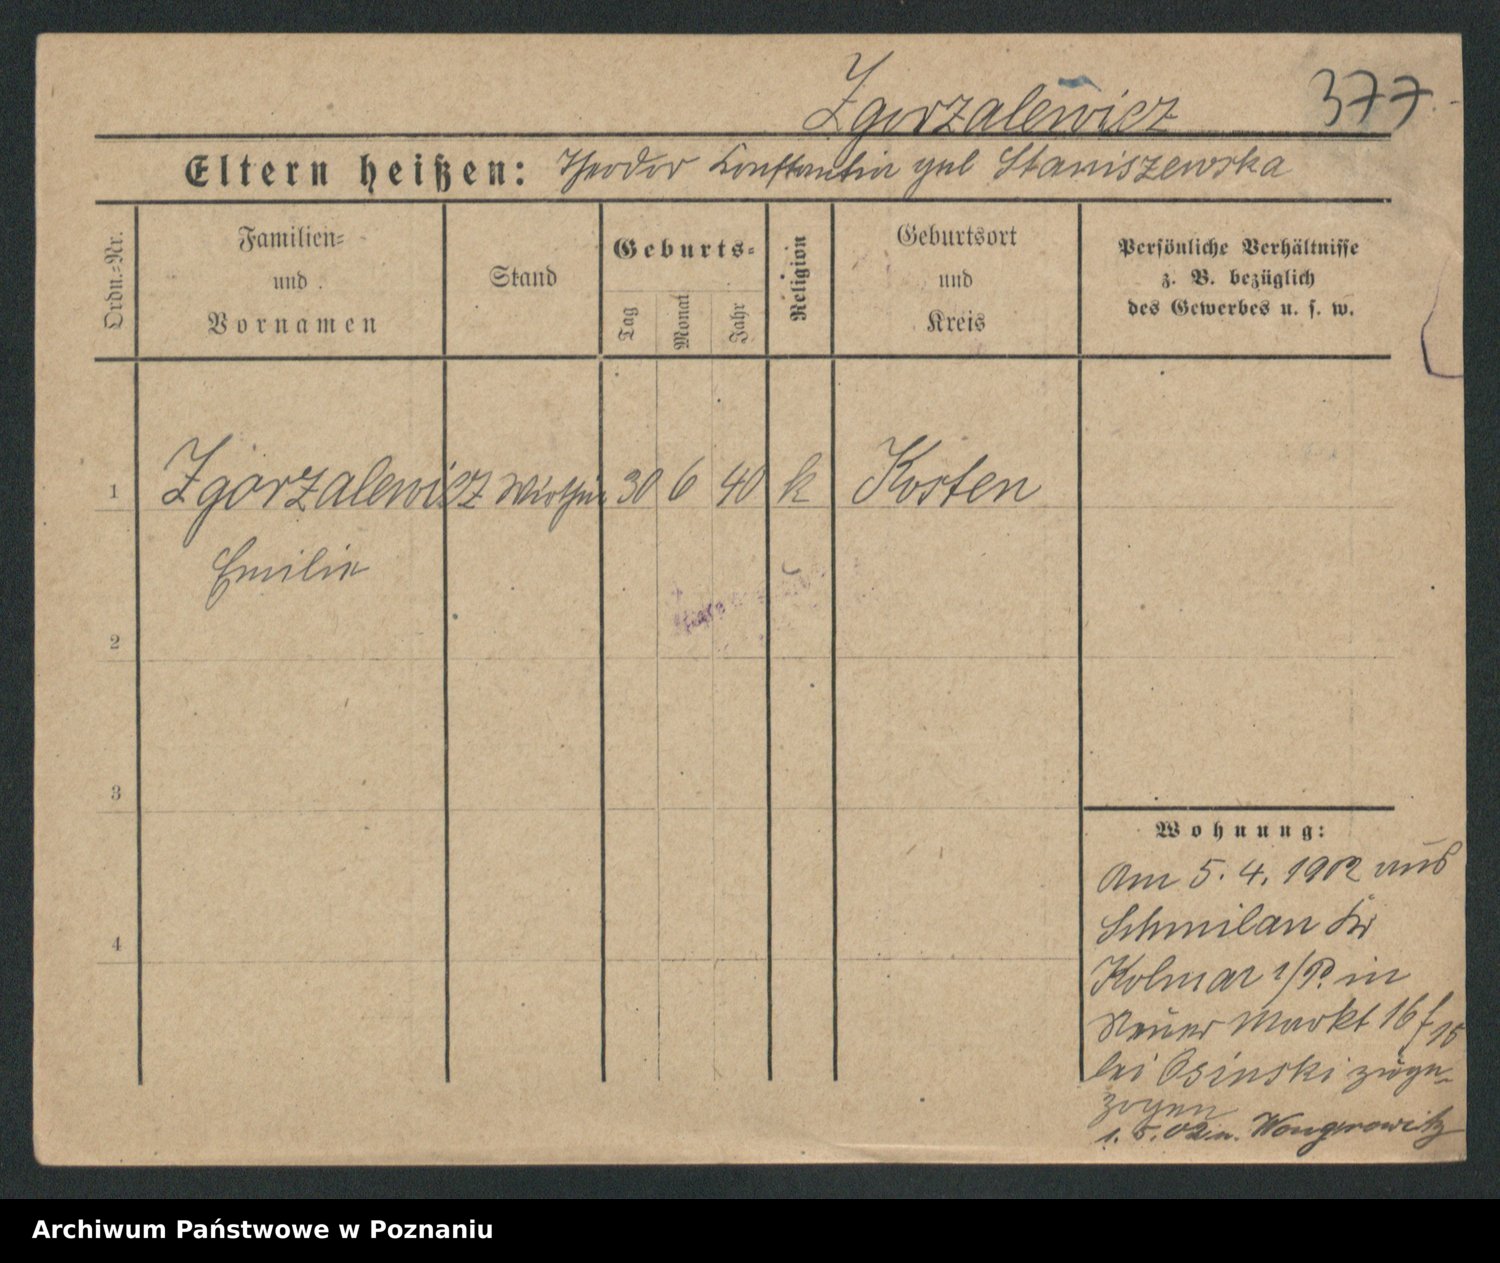 Zgorzalewicz 377
Eltern heißen: Theodor Konstantin geb Staniszewska
Ordn.=Nr.
Familien=
und
Vornamen
Stand
Geburts=
Tag
Monat
Jahr
Religion
Geburtsort
und
Kreis
Persönliche Verhältnisse
z. B. bezüglich
des Gewerbes u. s. w.
1 Zgorzalewicz Wirthin 30 6 40 k Kosten
Emilie
2
3
4
Wohnung:
Am 5.4.1902 aus
Schmilau Kr
Kolmar i/P. in
Neuer Markt 16
bei Osinski zuge-
zogen
1.5.02 n. Wongrowitz
Archiwum Państwowe w Poznaniu